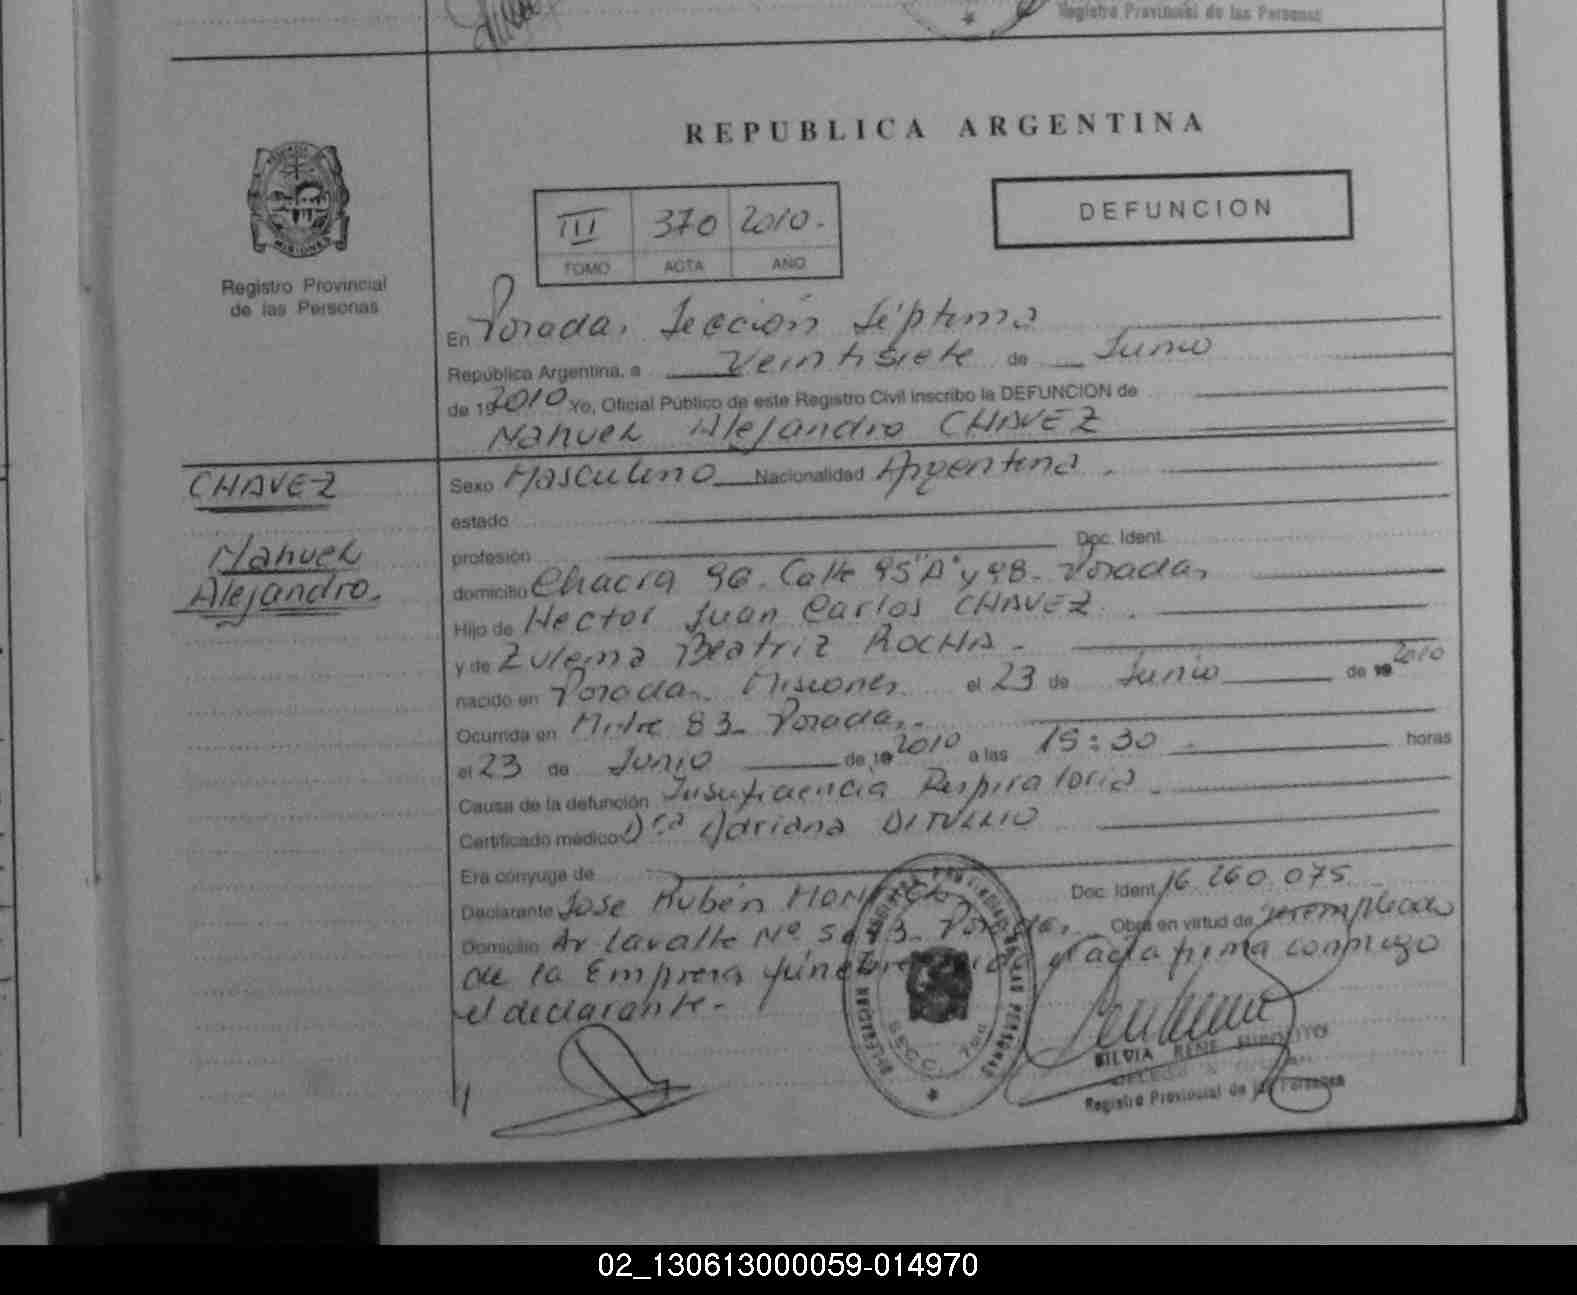 Registro Provincial de las Personas
REPUBLICA ARGENTINA
III 370 2010.
TOMO ACTA AÑO
DEFUNCION
MISIONES
Registro Provincial
de las Personas
En Posadas, Sección Séptima
República Argentina, a Veintisiete de Junio
de 192010 Yo, Oficial Público de este Registro Civil inscribo la DEFUNCION de
Nahuel Alejandro CHAVEZ
CHAVEZ
Nahuel
Alejandro.
Sexo Masculino Nacionalidad Argentina.
estado
profesión Doc. Ident.
domicilio Chacra 96. Calle 95"A" y 98- Posadas
Hijo de Hector Juan Carlos CHAVEZ.
y de Zulema Beatriz ROCHA.
nacido en Posadas. Misiones el 23 de Junio de 19 2010
Ocurrida en Mitre 83- Posadas.
el 23 de Junio de 19 2010 a las 15:30 horas
Causa de la defunción Insuficiencia Respiratoria.
Certificado médico Dra Adriana DITULLIO
Era cónyuge de
Declarante Jose Rubén Doc. Ident. 16.260.075
Domicilio Av Lavalle Nº Posadas. Obra en virtud de ser empleado
de la Empresa fúnebre acta firma conmigo
el declarante.-
SECC. 7ma
SILVIA RENE
Registro Provincial de las Personas
02_130613000059-014970